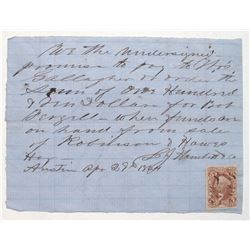 We the undersigned
promise to pay to Thos
Gallagher or order the
Sum of One Hundred
& Ten Dollars for Bob
when funds are
on hand from sale
of Robinson & Hawes
Austin Apr 29th